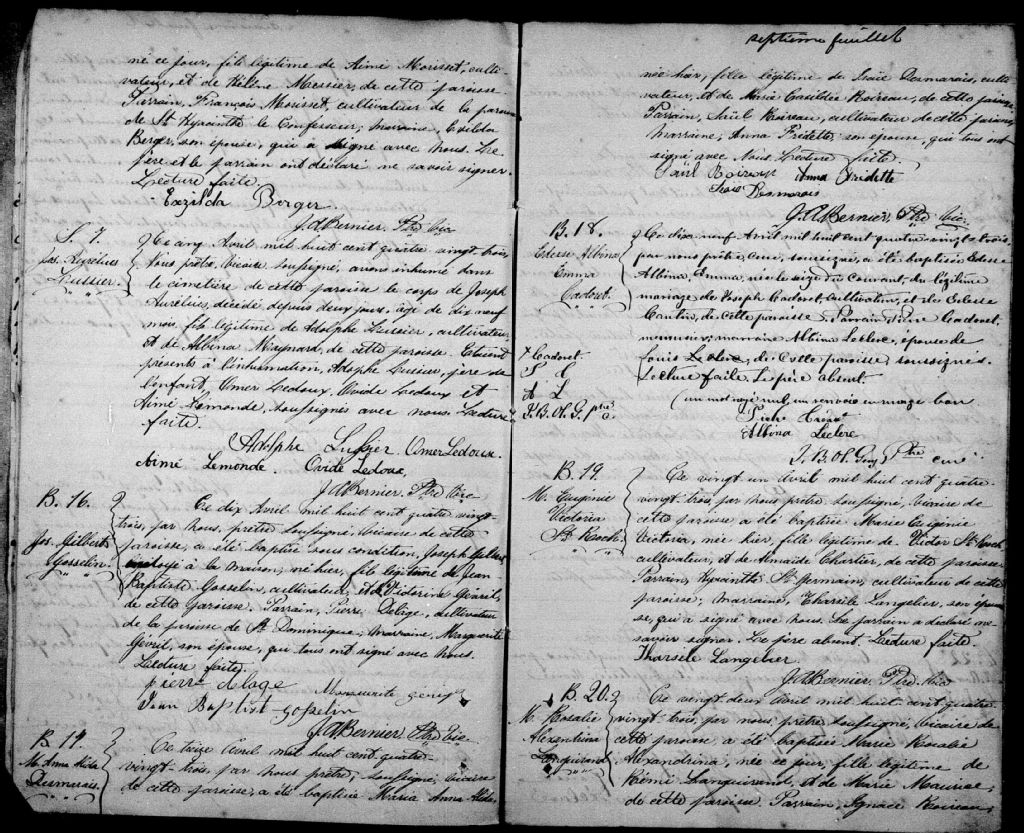 né ce jour, fils légitime de Aimé Morisset, culti-
vateur, et de Hélène Messier, de cette paroisse.
Parrain, François Morisset, cultivateur de la paroisse
de St Hyacinthe le Confesseur; marraine, Exilda
Berger, son épouse, qui a signé avec nous. Le
père et le parrain ont déclaré ne savoir signer.
Lecture faite.
Exzilda Berger
J.A Bernier, Ptre Vic
S. 7.
Jos. Aurélius
Lussier.
Ce cinq Avril mil huit cent quatre vingt trois,
Nous prêtre, Vicaire soussigné, avons inhumé dans
le cimetière de cette paroisse le corps de Joseph
Aurélius, décédé depuis deux jours, âgé de dix neuf
mois, fils légitime de Adolphe Lussier, cultivateur,
et de Albina Maynard, de cette paroisse. Etaient
présents à l'inhumation, Adolphe Lussier, père de
l'enfant, Omer Ledoux, Ovide Ledoux et
Aimé Lemonde, soussignés avec nous. Lecture
faite.
Adolphe Lussier Omer Ledoux
Aimé Lemonde. Ovide Ledoux
J.A Bernier, Ptre Vic
B. 16.
Jos. Gilbert
Gosselin.
Ce dix Avril mil huit cent quatre vingt-
trois, par nous, prêtre soussigné, Vicaire de cette
paroisse, a été baptisé sous condition, Joseph Gilbert
ondoyé à la maison, né hier, fils légitime de Jean
Baptiste Gosselin, cultivateur, et de Vidorine
de cette paroisse. Parrain, Pierre Delage, cultivateur
de la paroisse de St Dominique; marraine, Marguerite
son épouse, qui tous ont signé avec nous.
Lecture faite.
pierre delage
Marguerite
Jean Baptist gosselin
J.A Bernier, Ptre Vic
B. 17.
M. Anna Alida
Desmarais.
Ce treize Avril mil huit cent quatre-
vingt-trois, par nous prêtre, soussigné, Vicaire
de cette paroisse, a été baptisée Maria Anna Alida,
septième feuillet
née hier, fille légitime de Isaïe Desmarais, culti-
vateur, et de Marie Casildée Boireau, de cette paroisse.
Parrain, Saül Boireau, cultivateur de cette paroisse,
Marraine, Anna Fredette, son épouse, qui tous ont
signé avec Nous. Lecture faite.
Saül Boireau Anna Fredette
Isaïe Desmarais
J.A Bernier, Ptre Vic
B. 18.
Edesse Albina
Emma
Cadoret.
Ce dix neuf Avril mil huit cent quatre-vingt-trois
par nous prêtre, curé, soussigné, a été baptisée Edesse
Albina, Emma, née le seize du courant, du légitime
mariage de Joseph Cadoret, cultivateur, et de Edesse
Cantin, de cette paroisse. Parrain Pierre Cadoret,
menuisier; marraine Albina Leclerc, épouse de
Louis Leclerc, de cette paroisse soussignés.
Lecture faite. Le père absent.
Cadoret
P C
A L
J. B. Ol. G. ptre
un mot rayé nul, un renvoi en marge bon
Pierre
Albina Leclerc
J. B. Ol. Guy Ptre curé
B. 19.
M. Eugénie
Victoria
St. Roch.
Ce vingt un avril mil huit cent quatre-
vingt trois, par nous prêtre, soussigné, Vicaire de
cette paroisse a été baptisée Marie Eugénie
Victoria, née hier, fille légitime de Victor St. Roch,
cultivateur, et de Chartier, de cette paroisse.
Parrain, Hyacinthe St. Germain, cultivateur de cette
paroisse; marraine, Tharsile Langelier, son épou-
se, qui a signé avec nous. Le parrain a déclaré ne
savoir signer. Le père absent. Lecture faite.
Tharsile Langelier
J.A Bernier, Ptre Vic
B. 20.
M. Rosalie
Alexandrina
Languirand
Ce vingt deux avril mil huit cent quatre
vingt trois, par nous, prêtre soussigné, Vicaire de
cette paroisse a été baptisée Marie Rosalie
Alexandrina, née ce jour, fille légitime de
Rémi Languirand, et de Marie Maurice,
de cette paroisse. Parrain, Ignace Boireau,